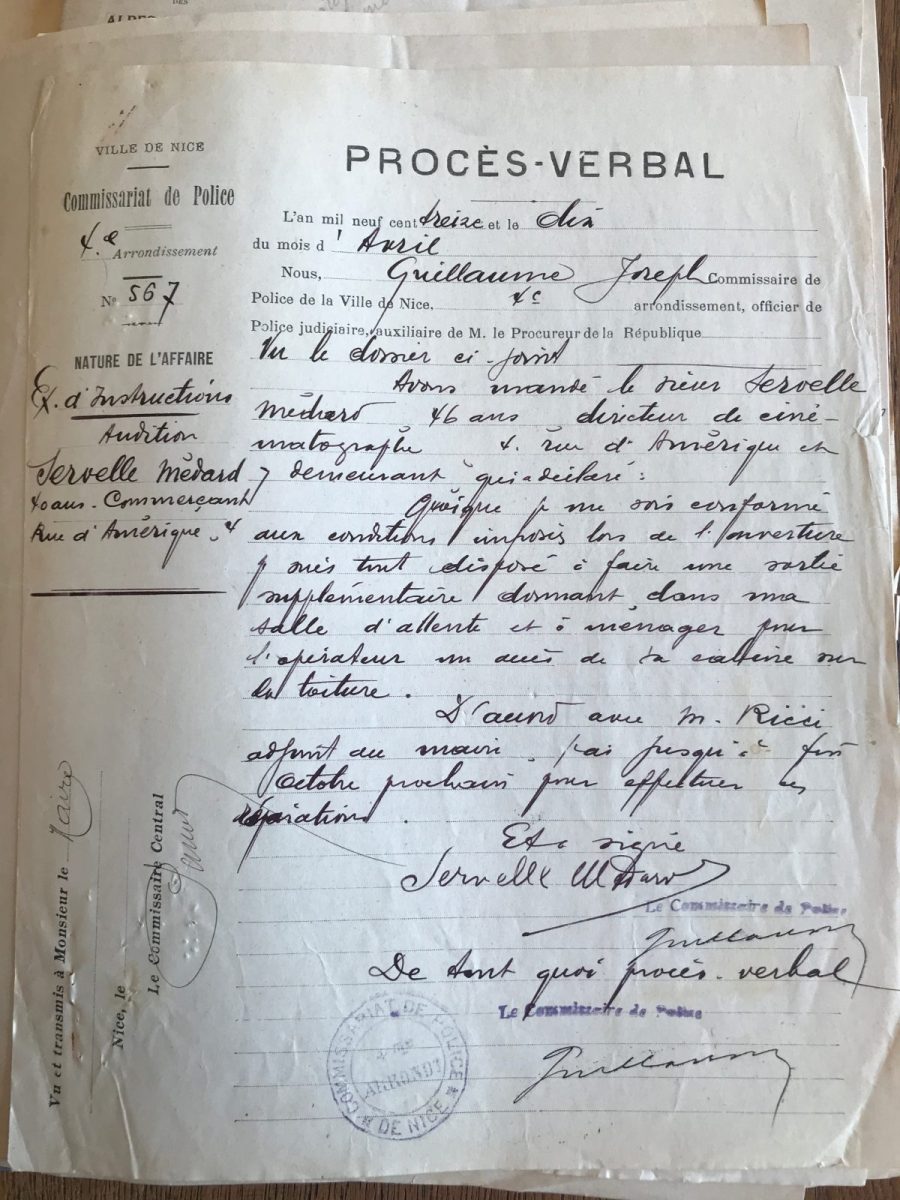 VILLE DE NICE
Commissariat de Police
4.e Arrondissement
No 567
NATURE DE L'AFFAIRE
Ex. d'Instructions
Audition
Servelle Médard
40 ans. Commerçant
Rue d'Amérique, 4
PROCÈS-VERBAL
L'an mil neuf cent treize et le dix
du mois d'Avril
Nous, Guillaume Joseph Commissaire de
Police de la Ville de Nice, 4e arrondissement, officier de
Police judiciaire, auxiliaire de M. le Procureur de la République
Vu le dossier ci-joint
Avons mandé le sieur Servelle
Médard 46 ans directeur de ciné-
matographe 4. rue d'Amérique et
y demeurant qui a déclaré :
Quoique je me sois conformé
aux conditions imposées lors de l'ouverture
je suis tout disposé à faire une sortie
supplémentaire donnant dans ma
salle d'attente et à ménager pour
l'opérateur un accès de sa cabine sur
la toiture.
D'accord avec M. Ricci
adjoint au maire, j'ai jusqu'à fin
Octobre prochain pour effectuer ces
réparations.
Et a signé
Servelle Médard
Le Commissaire de Police
Guillaume
De tout quoi procès-verbal
Le Commissaire de Police
Guillaume
COMMISSARIAT DE POLICE
4me
ARRONDT
DE NICE
Vu et transmis à Monsieur le Maire
Nice, le
Le Commissaire Central